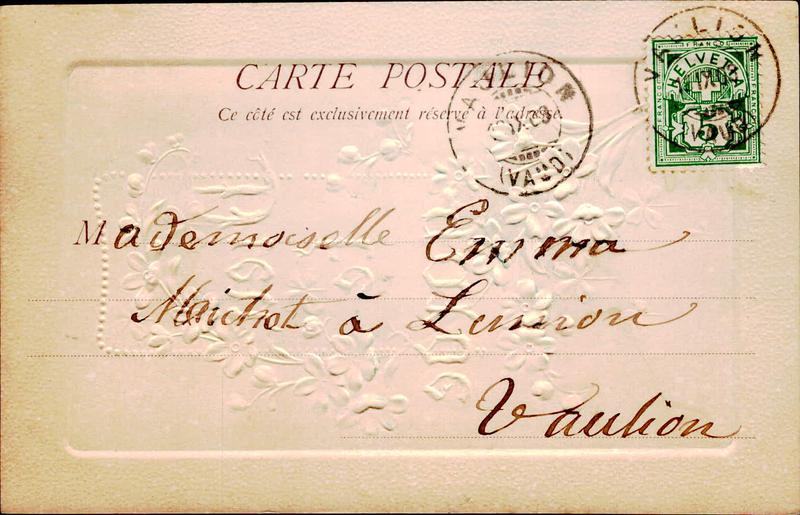 CARTE POSTALE
Ce côté est exclusivement réservé à l'adresse.
VAULION
(VAUD)
VAULION
FRANCO
HELVETIA
5
Mademoiselle Emma
Maichot à Lunion
Vaulion